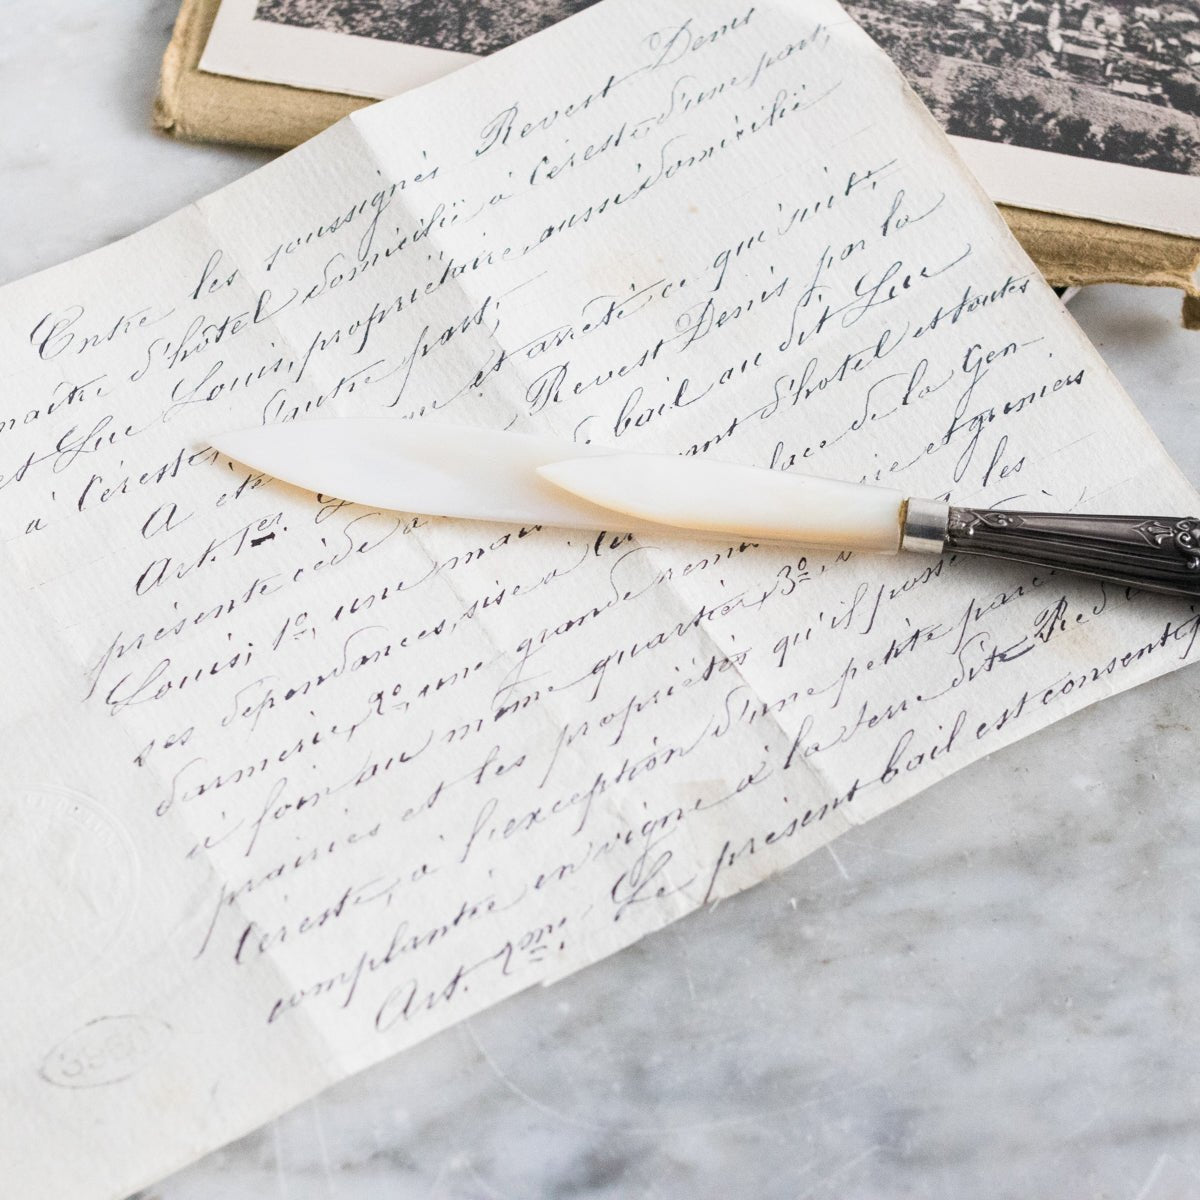 Entre les soussignés Revest Denis
maître d'hôtel domicilié à Céreste, d'une part;
et Luc Louis, propriétaire, aussi domicilié
à Céreste, d'autre part;
A été et arrêté ce qui suit;
Art. 1er. Revest Denis par la
présente cède à bail au dit Luc
Louis; 1º, une d'hotel et toutes
ses dépendances, sise à place de la Gen-
darmerie, 2º, une grande remise et greniers
à foin au même quartier, 3º, les
prairies et les propriétés qu'il
Céreste, à l'exception d'une petite
complantée en vigne à la terre dite
Art. 2me. Le présent bail est consenti